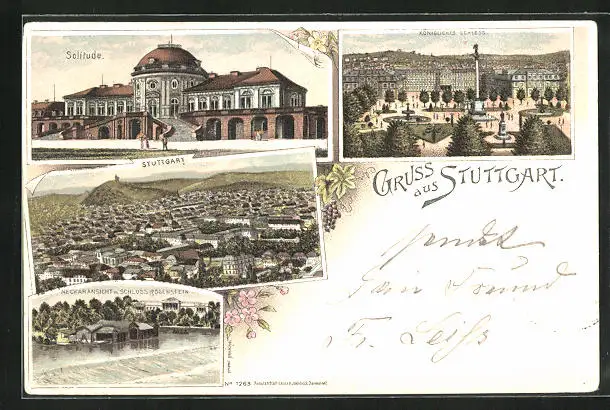 Solitude.
KÖNIGLICHES SCHLOSS.
STUTTGART
GRUSS aus STUTTGART.
sendet
Dein Freund
NECKARANSICHT m. SCHLOSS ROSENSTEIN
Fr.
No 1263